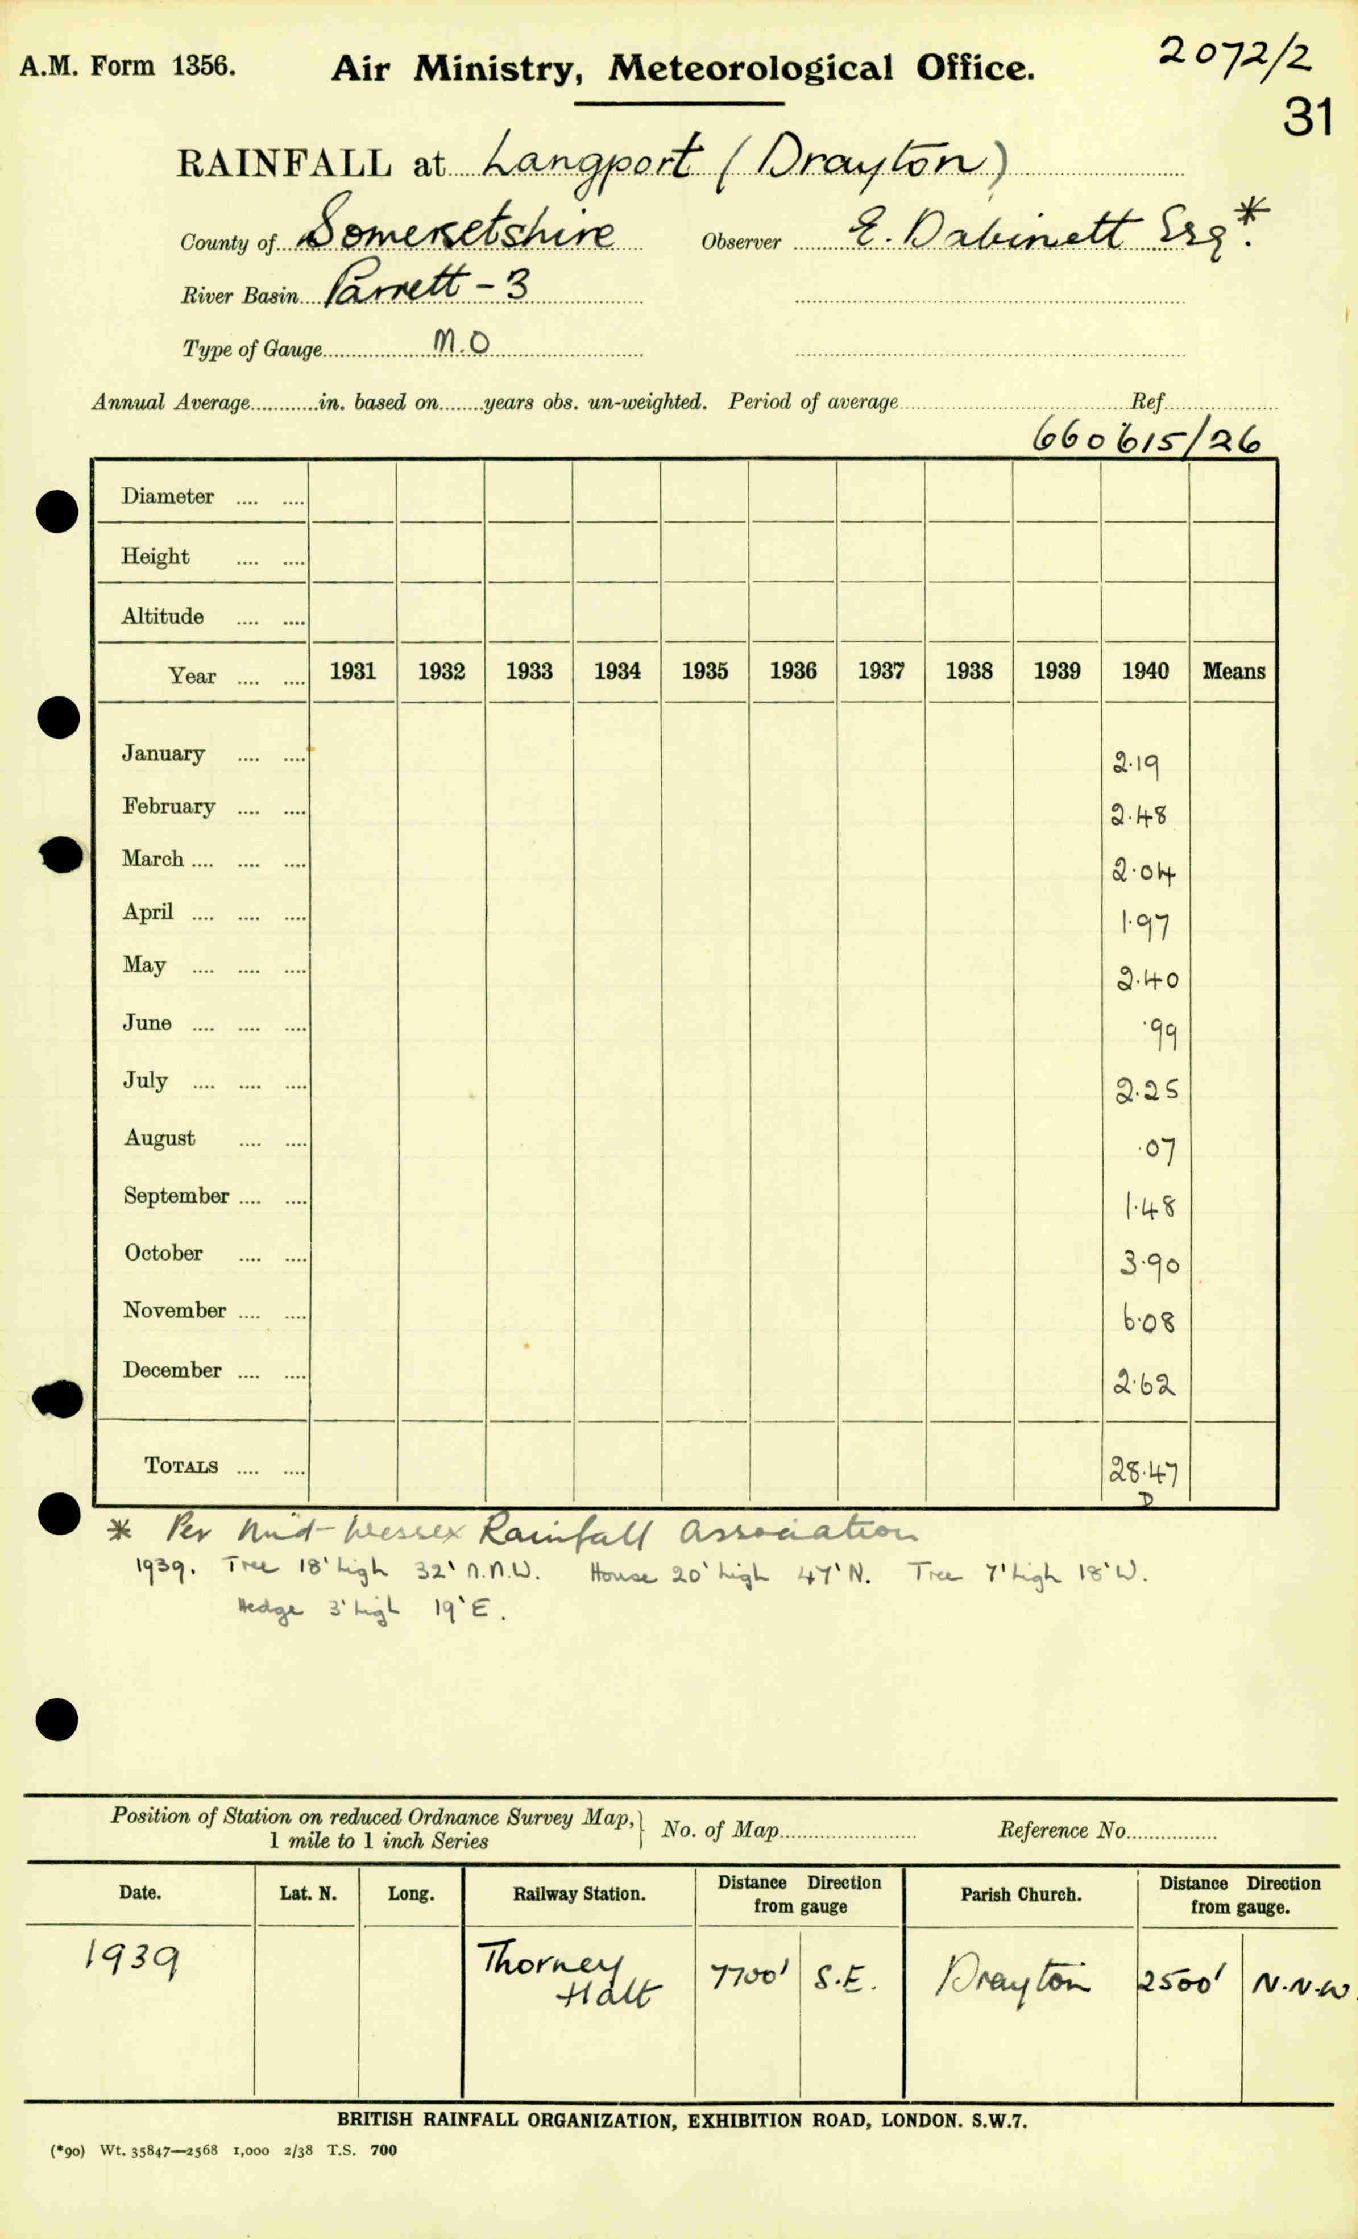 A.M. Form 1356. Air Ministry, Meteorological Office. 2072/2
31
RAINFALL at Langport (Drayton)
County of Somersetshire Observer E. Dabinett Esq.*
River Basin Parrett - 3
Type of Gauge M.O
Annual Average............in. based on........years obs. un-weighted. Period of average........................Ref....................
660615/26
Diameter .... ....
Height .... ....
Altitude .... ....
Year .... .... 1931 1932 1933 1934 1935 1936 1937 1938 1939 1940 Means
January .... .... 2.19
February .... .... 2.48
March .... .... .... 2.04
April .... .... .... 1.97
May .... .... .... 2.40
June .... .... .... .99
July .... .... .... 2.25
August .... .... .07
September .... .... 1.48
October .... .... 3.90
November .... .... 6.08
December .... .... 2.62
TOTALS .... .... 28.47
D
* Per Mid-Wessex Rainfall Association
1939. Tree 18' high 32' N.N.W. House 20' high 47' N. Tree 7' high 18' W.
Hedge 3' high 19' E.
Position of Station on reduced Ordnance Survey Map,} No. of Map........................ Reference No................
1 mile to 1 inch Series
Date. Lat. N. Long. Railway Station. Distance Direction from gauge Parish Church. Distance Direction from gauge.
1939 Thorney Halt 7700' S.E. Drayton 2500' N.N.W.
BRITISH RAINFALL ORGANIZATION, EXHIBITION ROAD, LONDON. S.W.7.
(*90) Wt. 35847—2568 1,000 2/38 T.S. 700